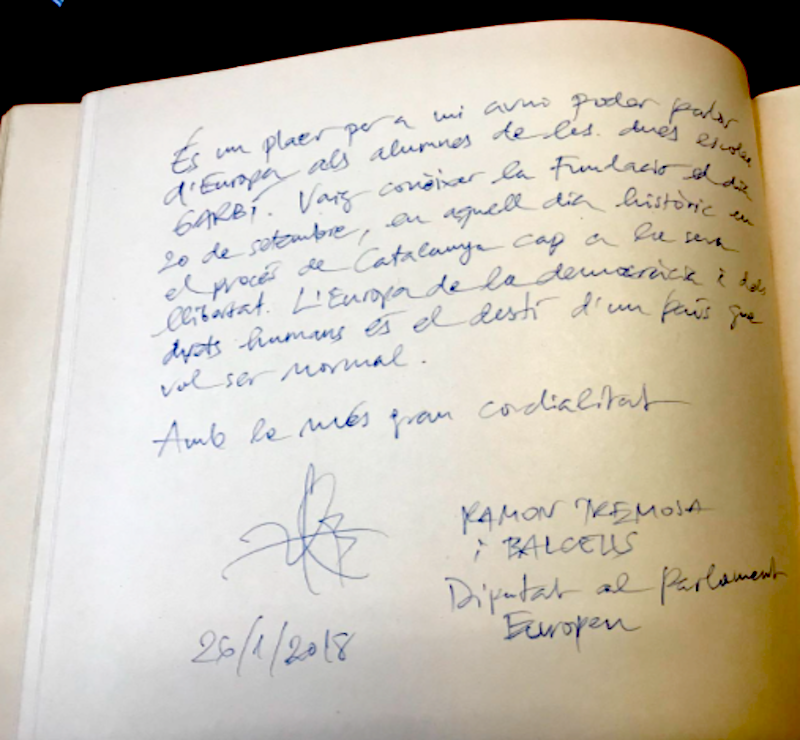 És un plaer per a mi avui poder parlar
d'Europa als alumnes de les dues escoles
GARBÍ. Vaig conèixer la Fundació el dia
20 de setembre, en aquell dia històric en
el procés de Catalunya cap a la seva
llibertat. L'Europa de la democràcia i dels
drets humans és el destí d'un país que
vol ser normal.
Amb la més gran cordialitat
RAMON TREMOSA
i BALCELLS
Diputat al Parlament
Europeu
26/1/2018